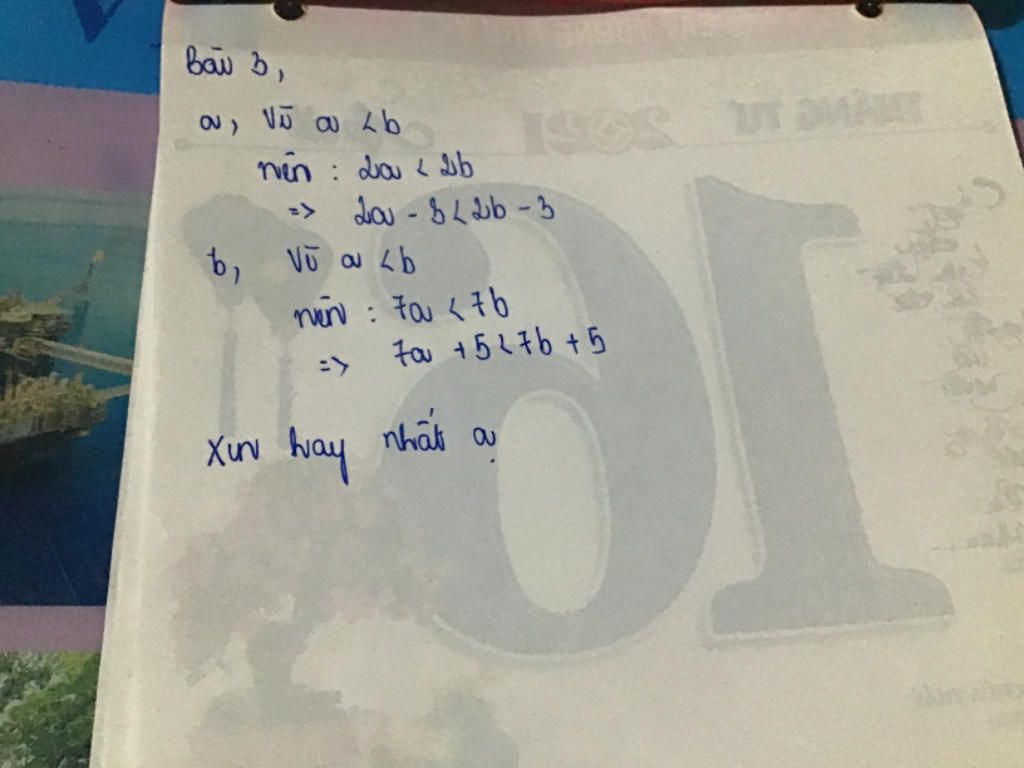 Bài 3,
a, Vì a < b
nên : 2a < 2b
=> 2a - 3 < 2b - 3
b, Vì a < b
nên : 7a < 7b
=> 7a + 5 < 7b + 5
Xin hay nhất ạ
THÁNG TƯ
2021
16